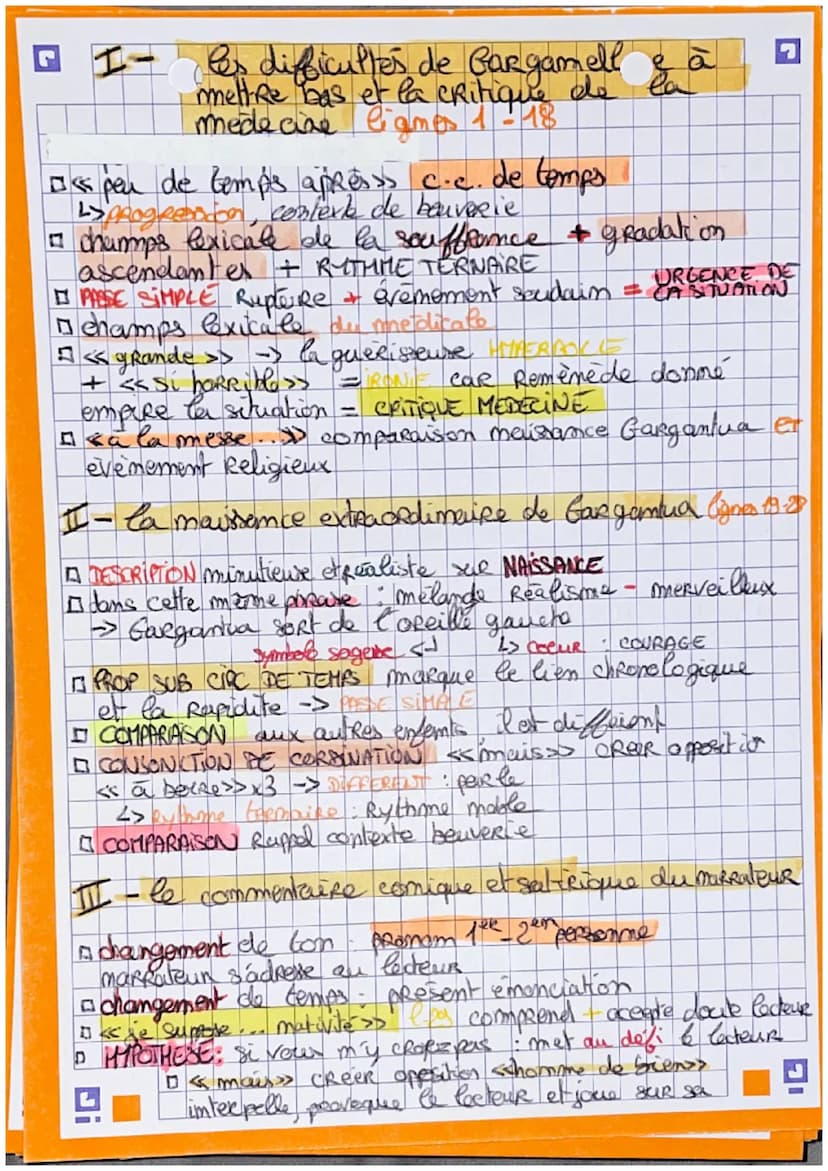 I - les difficultés de Gargamelle à
mettre bas et la critique de la
médecine lignes 1 - 18
« peu de temps après » c.c. de temps
↳ progression, contexte de beuverie
champs lexicale de la souffrance + gradation
ascendantes + RYTHME TERNAIRE
PASSE SIMPLE Rupture + évènement soudain = URGENCE DE LA SITUATION
champs lexicale du medicale
« grande » -> la guérisseuse HYPERBOLE
+ « si horrible » = IRONIE car Remènède donné
empire la situation = CRITIQUE MEDECINE
« a la messe... » comparaison naissance Gargantua et
evènement Religieux
II - la naissance extraordinaire de Gargantua lignes 19-28
DESCRIPTION minutieuse et réaliste sur NAISSANCE
dans cette même phrase : mélange Réalisme - merveilleux
-> Gargantua sort de l'oreille gauche
symbole sagesse <-| ↳ coeur : COURAGE
PROP SUB CIRC DE TEMPS marque le lien chronologique
et la Rapidite -> PASSE SIMPLE
COMPARAISON aux autres enfants, il est différent
CONJONCTION DE CORDINATION « mais » creer oppositio
« à boire » x3 -> DIFFERENT : parle
↳ Rythme ternaire : Rythme noble
COMPARAISON Rappel contexte beuverie
III - le commentaire comique et satirique du narrateur
changement de ton : pronom 1ere - 2em personne
narrateur s'adresse au lecteur
changement de temps : présent énonciation
« je suppose ... nativité » comprend + accepte doute lecteur
HYPOTHESE : si vous n'y croyez pas : met au défi le lecteur
« mais » créer opposition « homme de bien »
interpelle, provoque le lecteur et joue sur sa